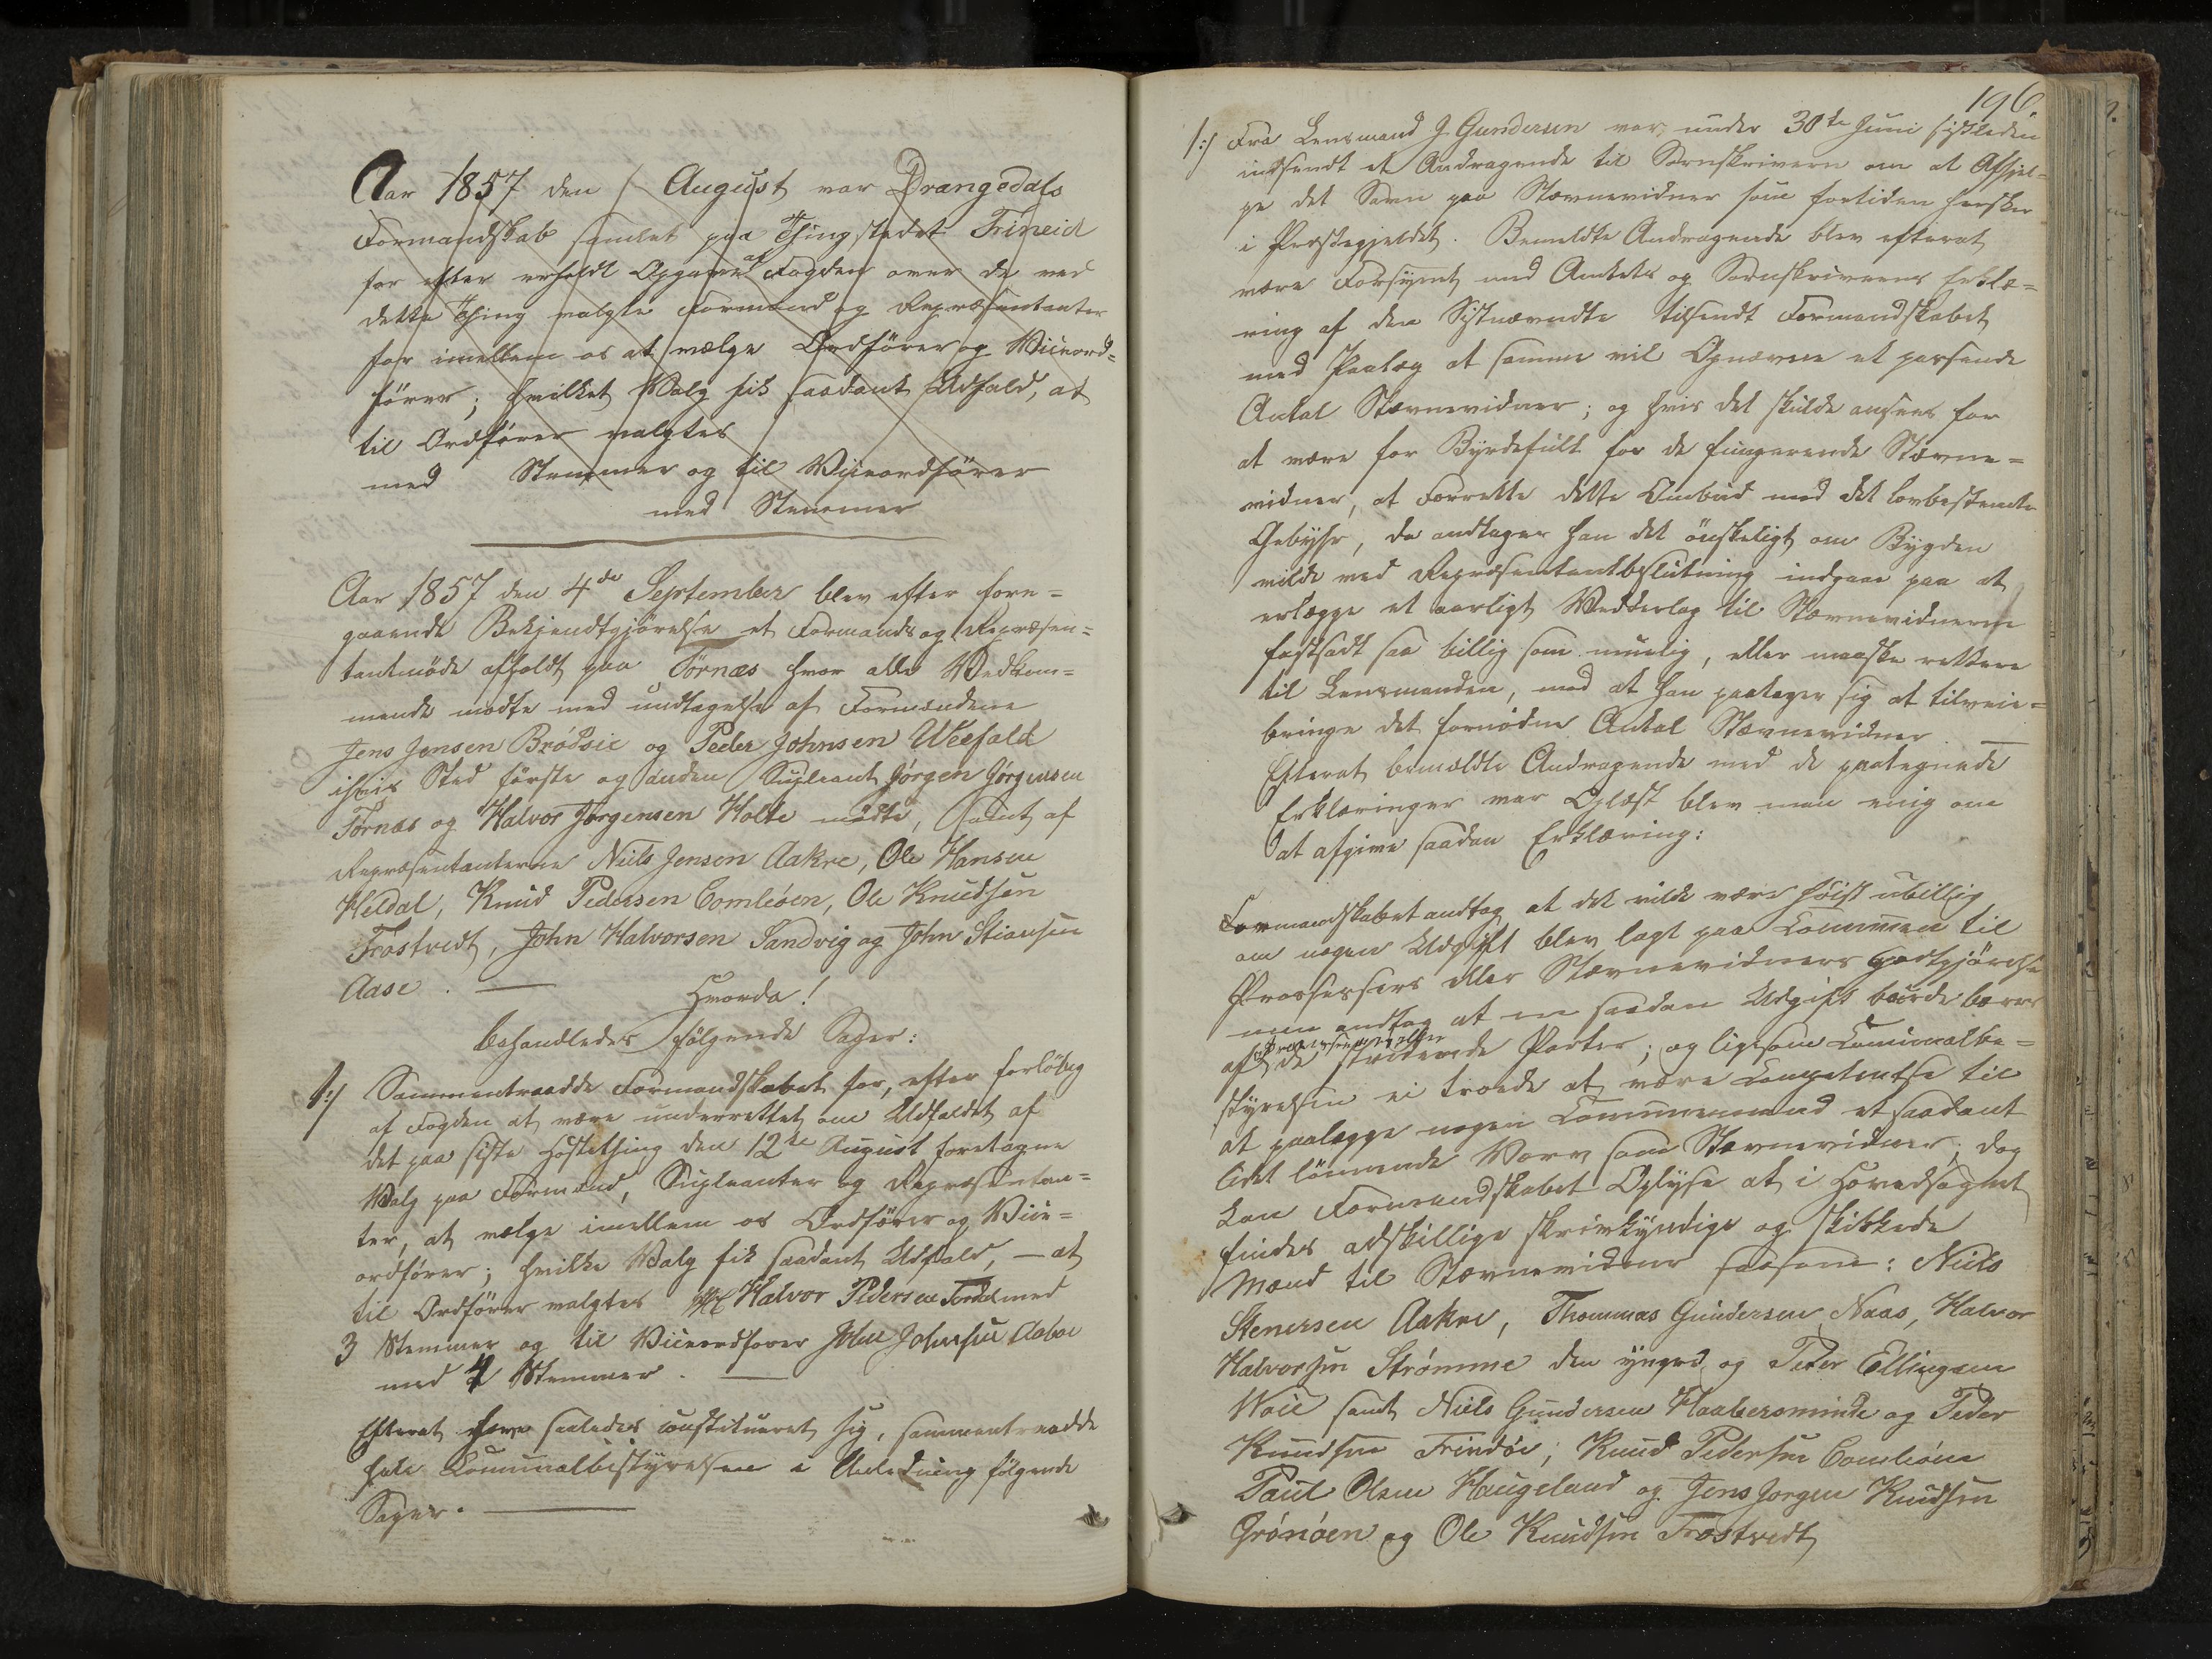 Aar 1857 den August var Drangedals
Formandskab samlet paa Thingstedet Frineid
for efter erholdt Opgave af Fogden over de ved
dette Thing valgte Formænd og Repræsentanter
for imellem os at vælge Ordfører og Viceord=
fører; hvilket Valg fik saadant Udfald, at
til Ordfører valgtes
med Stemmer og til Viceordfører
med Stemmer
Aar 1857 den 4de September blev efter fore=
gaaende Bekjendtgjørelse et Formands og Repræsen=
tantmøde afholdt paa Tørnæs hvor alle Vedkom=
mende mødte med undtagelse af Formændene
Jens Jensen Brødsie og Peder Johnsen Weefald
ihvis Sted første og anden Supleant Jørgen Jørgensen
Tørnæs og Halvor Jørgensen Holte mødte, samt af
Repræsentanterne Niels Jensen Aakre, Ole Hansen
Heldal, Knud Pedersen Comliøen, Ole Knudsen
Frøstvedt, John Halvorsen Sandvig og John Stiansen
Aase.
Hvorda!
behandledes følgende Sager:
1:) Sammentraadde Formandskabet for, efter forløbig
af Fogden at være underrettet om Udfaldet af
det paa siste Høstething den 12te August foretagne
Valg paa Formænd, Supleanter og Repræsentan=
ter, at vælge imellem os Ordfører og Vice=
ordfører; hvilke Valg fik saadant Udfald, – at
til Ordfører valgtes Halvor Pedersen Tordal med
3 Stemmer og til Viceordfører John Johnsen Aabøe
med 4 Stemmer.
Efterat have saaledes constitueret sig, sammentraadde
hele Communalbestyrelsen i Anledning følgende
Sager.
196.
1:) Fra Lensmand J Gundersen var under 30te Juni sistleden
indsendt et Andragende til Sornskriveren om at Afhjel=
pe det Savn paa Stævnevidner som fortiden hersker
i Præstegjeldet. Bemeldte Andragende blev efterat
være Forsynet med Amtets og Sornskriverens Erklæ=
ring af den Sistnævndte tilsendt Formandskabet
med Paalæg at samme vil Opnævne et passende
Antal Stævnevidner; og hvis det skulde ansees for
at være for Byrdefuldt for de fungerende Stævne=
vidner, at Forrette dette Ombud med det lovbestemte
Gebyhr, da andtager han det ønskeligt om Bygden
vilde ved Repræsentantbeslutning indgaae paa at
erlægge et aarligt Wedderlag til Stævnevidnerne
fastsadt saa billig som muelig, eller maaske rettere
til Lensmanden, mod at han paatager sig at tilveie=
bringe det fornødne Antal Stævnevidner.
Efterat bemældte Andragende med de paategnede
Erklæringer var Oplæst blev man enig om
at afgive saadan Erklæring:
Formandskabet andtog at det vilde være høist ubillig
om nogen Udgift blev lagt paa Communen til
Processers eller Stævnevidners Godtgjørelse
men andtog at en saadan Udgift burde bæres
af de stridende Parter; og ligesom Comunalbe=
styrelsen ei troede at være Competentse til
at paalægge nogen Communemand et saadant
lidet lønnende Værv som Stævnevidner, dog
kan Formandskabet Oplyse at i Hovedsognet
findes adskillige skrivkyndige og skikkede
Mænd til Stævnevidner saasom: Niels
Stenersen Aakre, Thommas Gundersen Naas, Halvor
Halvorsen Strømme den yngre og Peder Ellingsen
Woie samt Niels Gundersen Haabersminde og Peder
Knudsen Frindøe; Knud Pedersen Comliøen
Paul Olsen Haugeland og Jens Jørgen Knudsen
Grønøen og Ole Knudsen Frøstvedt